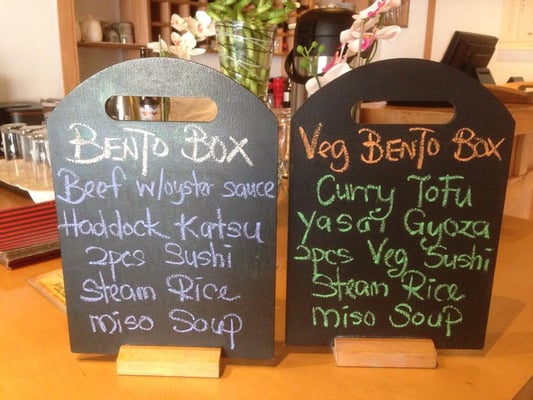 Bento Box
Beef w/oyster sauce
Haddock Katsu
2pcs Sushi
Steam Rice
miso Soup
Veg Bento Box
Curry Tofu
Yasai Gyoza
2pcs Veg Sushi
Steam Rice
miso Soup